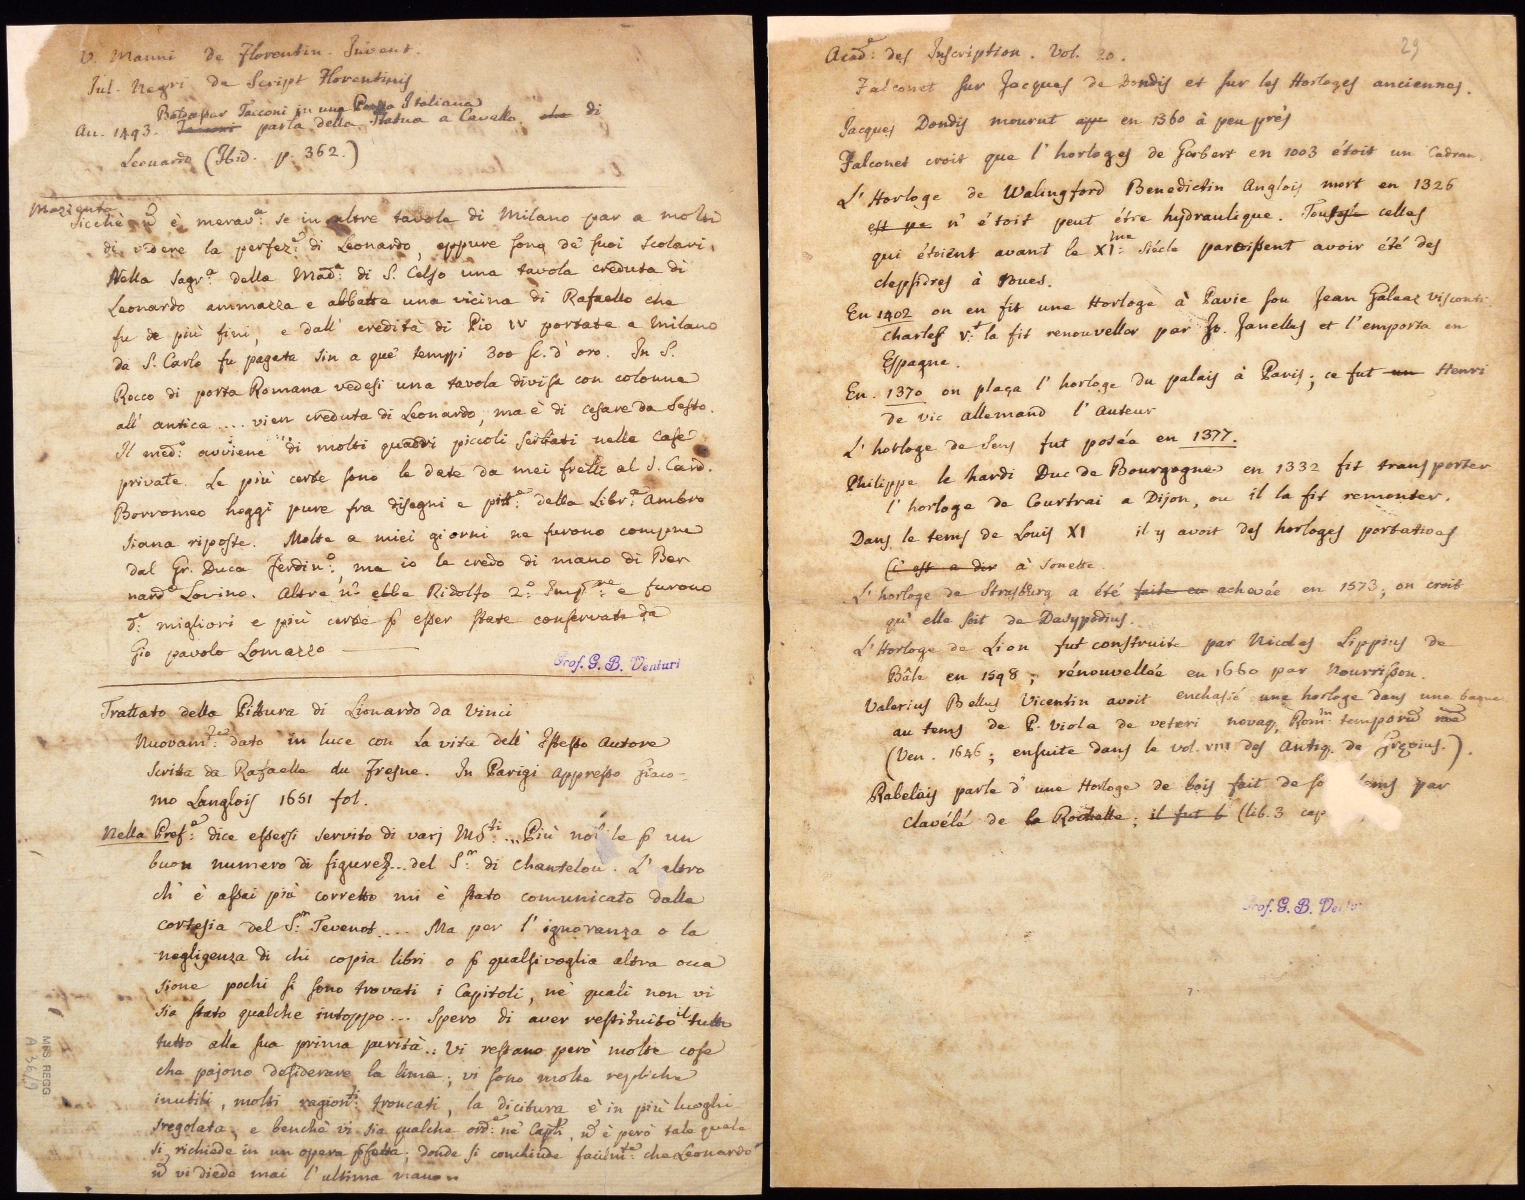 V. Manni de Florentin. Invent.
Jul. Negri de Script Florentinis
Baldassar Tacconi in una Italiana
An. 1493. Tacconi parla della Statua a Cavallo di
Leonardo (Ibid. p. 362.)
Mazienta
Sicchè n̄ è merav.a se in altre tavole di Milano par a molti
di vedere la perfez.e di Leonardo, oppure sono de' suoi scolari.
Nella Sagr.a della Mad.a di S. Celso una tavola creduta di
Leonardo ammazza e abbatte una vicina di Rafaello che
fu de più fini, e dall' eredità di Pio IV portata a Milano
da S. Carlo fu pagata sin a que' tempi 300 sc. d' oro. In S.
Rocco di porta Romana vedesi una tavola divisa con colonne
all' antica ... vien creduta di Leonardo, ma è di Cesare da Sesto.
Il med.o avviene di molti quadri piccoli serbati nelle case
private. Le più certe sono le date da miei fratelli al S. Card.
Borromeo hoggi pure fra disegni e pitt.e della Libr.a Ambro
siana riposte. Molte a miei giorni ne furono comprate
dal Gr. Duca Ferdin.o, ma io le credo di mano di Ber
nard.o Lovino. Altre n' ebbe Ridolfo 2.o Imp.re e furono
migliori e più certe p esser state conservate da
Gio pavolo Lomazzo
Prof. G. B. Venturi
Trattato della Pittura di Lionardo da Vinci
Nuovam.te dato in luce con la vita dell' Istesso Autore
scritta da Rafaelle du Fresne. In Parigi appresso Giaco-
mo Langlois 1651 fol.
Nella Pref.e dice essersi servito di varj MS.ti ... Più nobile p un
buon numero di figure ... del S.r di Chantelou. L' altro
ch' è assai più corretto mi è stato comunicato dalla
cortesia del S.r Tevenot ... Ma per l' ignoranza o la
negligenza di chi copia libri o p qualsivoglia altra occa
sione pochi si sono trovati i Capitoli, ne' quali non vi
sia stato qualche intoppo ... Spero di aver restituito il tutto
tutto alla sua prima purità .. Vi restano però molte cose
che pajono desiderare la lima; vi sono molte repliche
inutili, molti ragion.ti troncati, la dicitura è in più luoghi
sregolata, e benchè vi sia qualche ord.e ne' Capli, n̄ è però tale quale
si richiede in un opera pfetta; donde si conchiude facilm.te che Leonardo
n̄ vi diede mai l' ultima mano.
MSS. REGG.
A 36/9
29
Acad.e des Inscription. Vol. 20.
Falconet sur Jacques de Dondis et sur les Horloges anciennes.
Jacques Dondis mourut en 1360 à peu près
Falconet croit que l' horloges de Gerbert en 1003 étoit un Cadran.
L' Horloge de Walingford Benedictin Anglois mort en 1326
est pe n' étoit peut étre hydraulique. Toutes celles
qui étoient avant le XI.me siécle paroissent avoir été des
clepsidres à roues.
En 1402 on en fit une Horloge à Pavie sou Jean Galeaz Visconti
Charles V.t la fit renouveller par Jo. Janellus et l' emporta en
Espagne.
En. 1370 on plaça l' horloge du palais à Paris; ce fut un Henri
de vic allemand l' auteur
L' horloge de Sens fut posée en 1377.
Philippe le hardi Duc de Bourgogne en 1332 fit transporter
l' horloge de Courtrai a Dijon, ou il la fit remonter.
Dans le tems de Louis XI il y avoit des horloges portatives
(c' est a dir à sonette.
L' horloge de Strasburg a été faite en achevée en 1573; on croit
qu' elle soit de Dasypodius.
L' Horloge de Lion fut construite par Nicolas Lippius de
Bâle en 1598; rénouvellée en 1660 par Nourrisson.
Valerius Bellus Vicentin avoit enchassé une horloge dans une bague
au tems de P. Viola de veteri novaq. Rom.m temporū
(Ven. 1646; ensuite dans le vol. VIII des Antiq. de Grevius.).
Rabelais parle d' une Horloge de bois fait de so tems par
Clavélé de la Rochette; il fut b (lib. 3 cap
Prof. G. B. Ventur